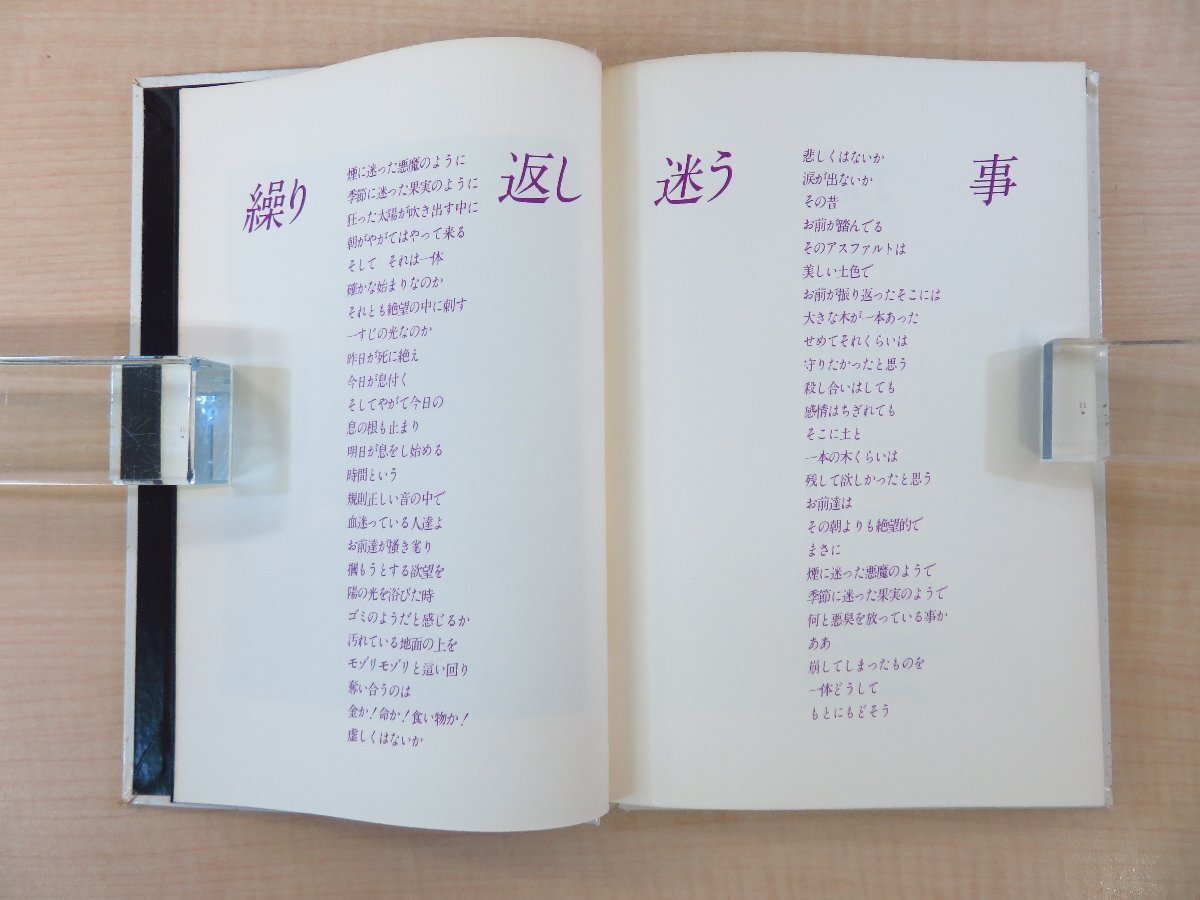 繰り 返し 迷う 事
煙に迷った悪魔のように
季節に迷った果実のように
狂った太陽が吹き出す中に
朝がやがてはやって来る
そして それは一体
確かな始まりなのか
それとも絶望の中に刺す
一すじの光なのか
昨日が死に絶え
今日が息付く
そしてやがて今日の
息の根も止まり
明日が息をし始める
時間という
規則正しい音の中で
血迷っている人達よ
お前達が掻き毟り
摑もうとする欲望を
陽の光を浴びた時
ゴミのようだと感じるか
汚れている地面の上を
モゾリモゾリと這い回り
奪い合うのは
金か！命か！食い物か！
虚しくはないか
悲しくはないか
涙が出ないか
その昔
お前が踏んでる
そのアスファルトは
美しい土色で
お前が振り返ったそこには
大きな木が一本あった
せめてそれくらいは
守りたかったと思う
殺し合いはしても
感情はちぎれても
そこに土と
一本の木くらいは
残して欲しかったと思う
お前達は
その朝よりも絶望的で
まさに
煙に迷った悪魔のようで
季節に迷った果実のようで
何と悪臭を放っている事か
ああ
崩してしまったものを
一体どうして
もとにもどそう